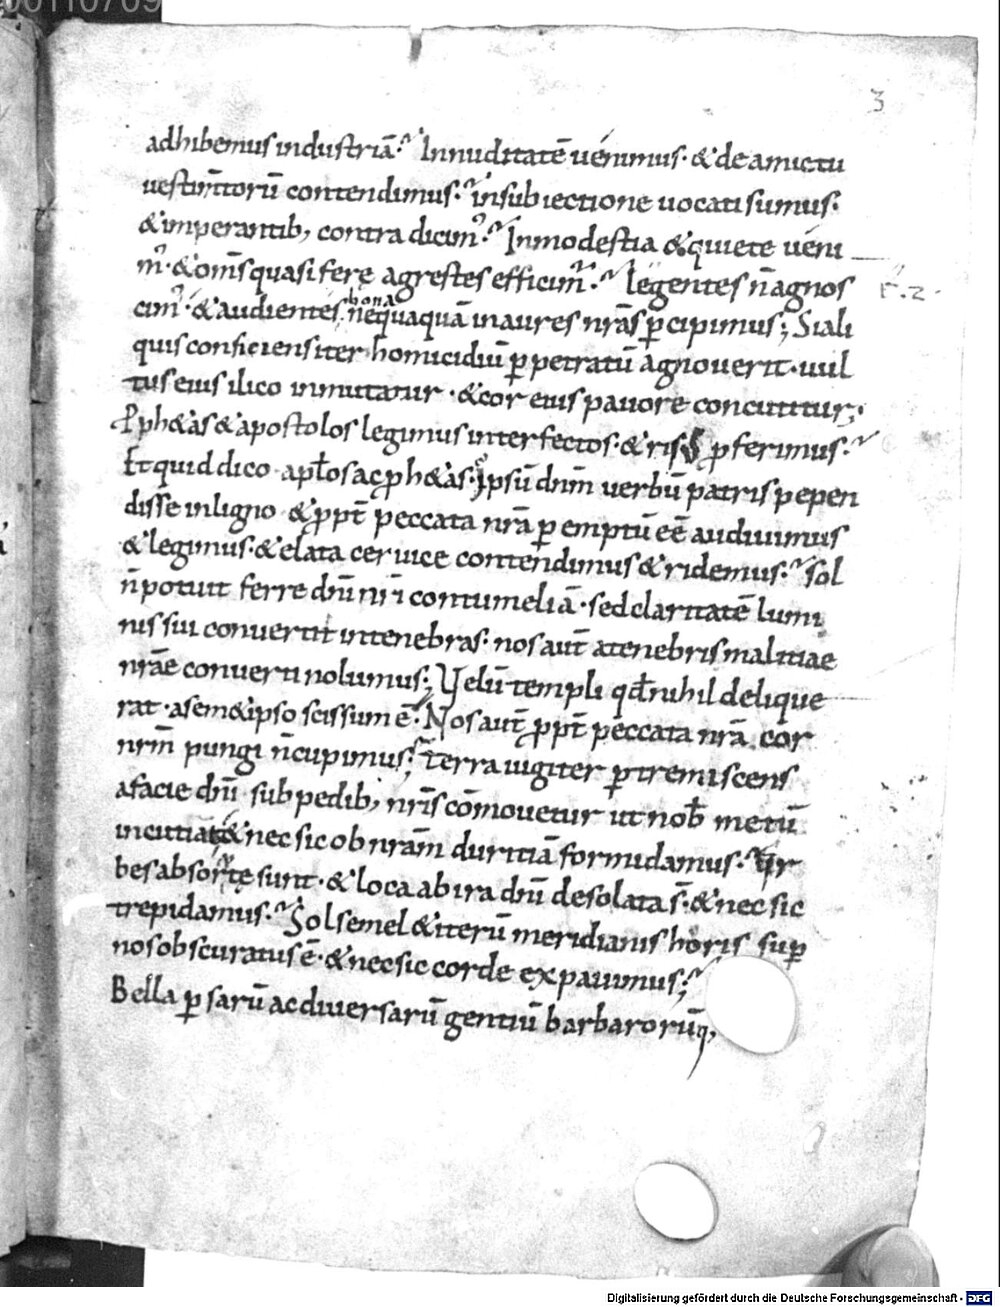 00110709
3
adhibemus industriā. Innuditatē venimus· & de amictu
vestimtorū contendimus. insubiectione uocati sumus.
& imperantib; contradicim᾽. Inmodestia & quiete ueni
m᾽· & oms quasi ferę agrestes efficim᾽. legentes n̄ agnos
r. 2.
cim᾽· & audientes bona nequaquā in aures nrās ꝑcipimus; Si ali
quis conficiens iter homicidiū ꝑpetratū agnouerit· uul
tus eius ilico inmutatur· & cor eius pauore concutitur;
Pph&as & apostolos legimus interfectos· & ris proferimus.
Et quid dico apłos ac ph&as· ipsū dnm̄ uerbū patris pepen
disse in ligno & ꝓpt̄ peccata nrā ꝑemptū eē audiuimus
& legimus· & elata ceruice contendimus & ridemus. Sol
n̄ potuit ferre dnī nrī contumeliā· sed claritatē lumi
nis sui conuertit in tenebras· nos aut̄ a tenebris malitiae
nrāe conuerti nolumus; Velū templi qd̄ nihil delique
rat· a sem&ipso scissum ē· Nos aut̄ ꝓpt̄ peccata nrā cor
nrm̄ pungi n̄ cupimus; terra iugiter ꝑtremiscens
a facie dnī sub pedib; nrīs cōmouetur ut nob̄ metū
incutiat & nec sic ob nrām duritiā formidamus. Ur
bes absortę sunt· & loca ab ira dnī desolata s̄· & nec sic
trepidamus. Sol semel & iterū meridianis horis suꝑ
nos obscuratus ē· & nec sic corde expauimus;
Bella ꝑsarū ac diuersarū gentiū barbarorūq;
Digitalisierung gefördert durch die Deutsche Forschungsgemeinschaft - DFG